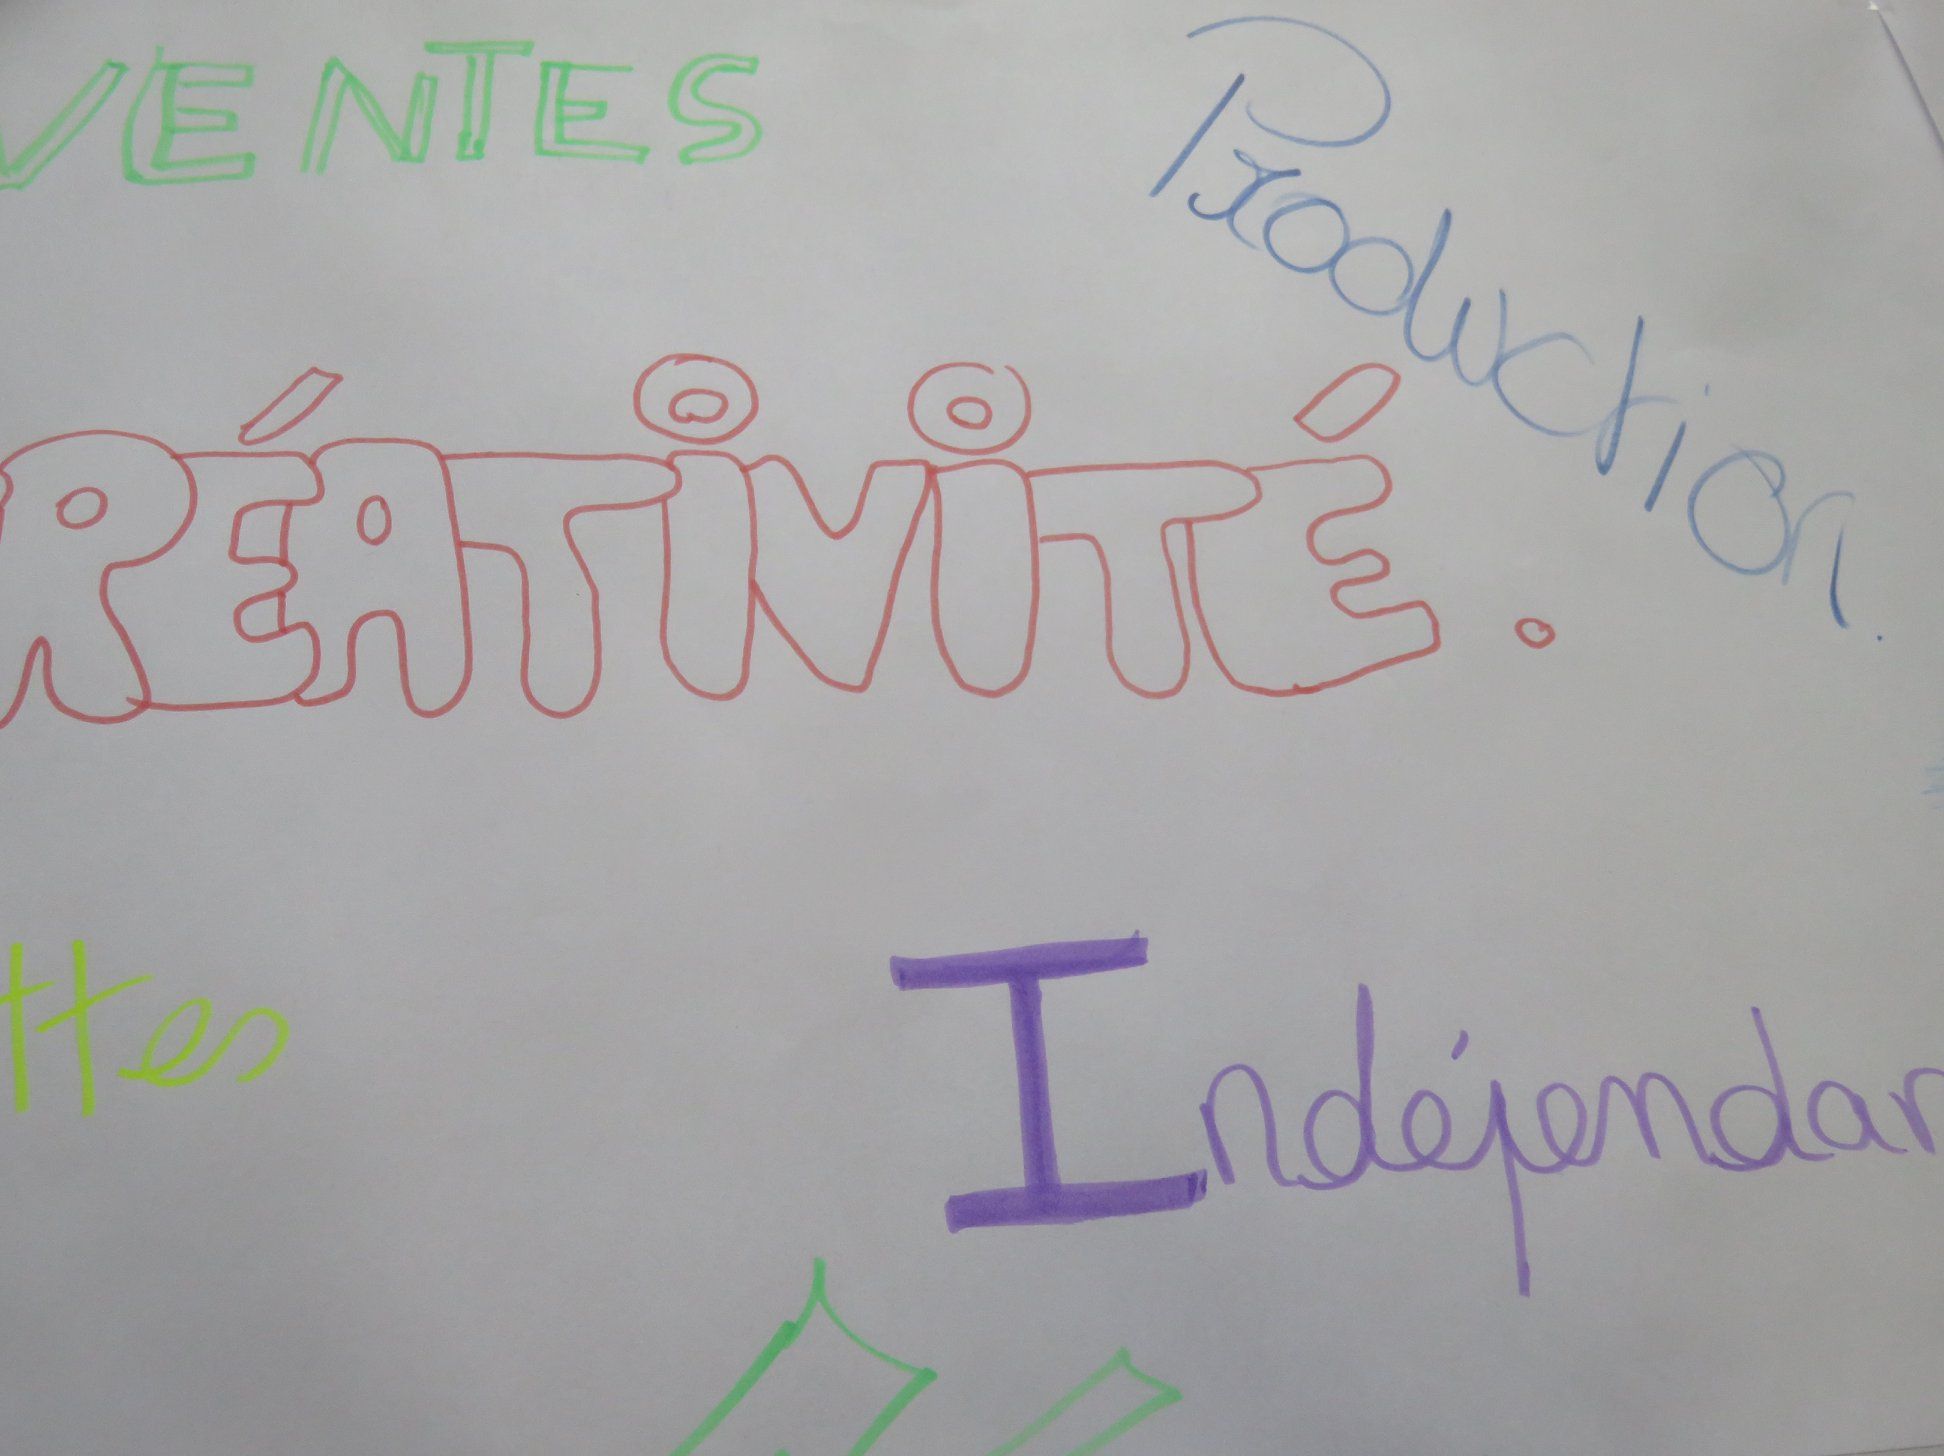 VENTES
Production.
RÉATiViTÉ.
ttes
Indépendan